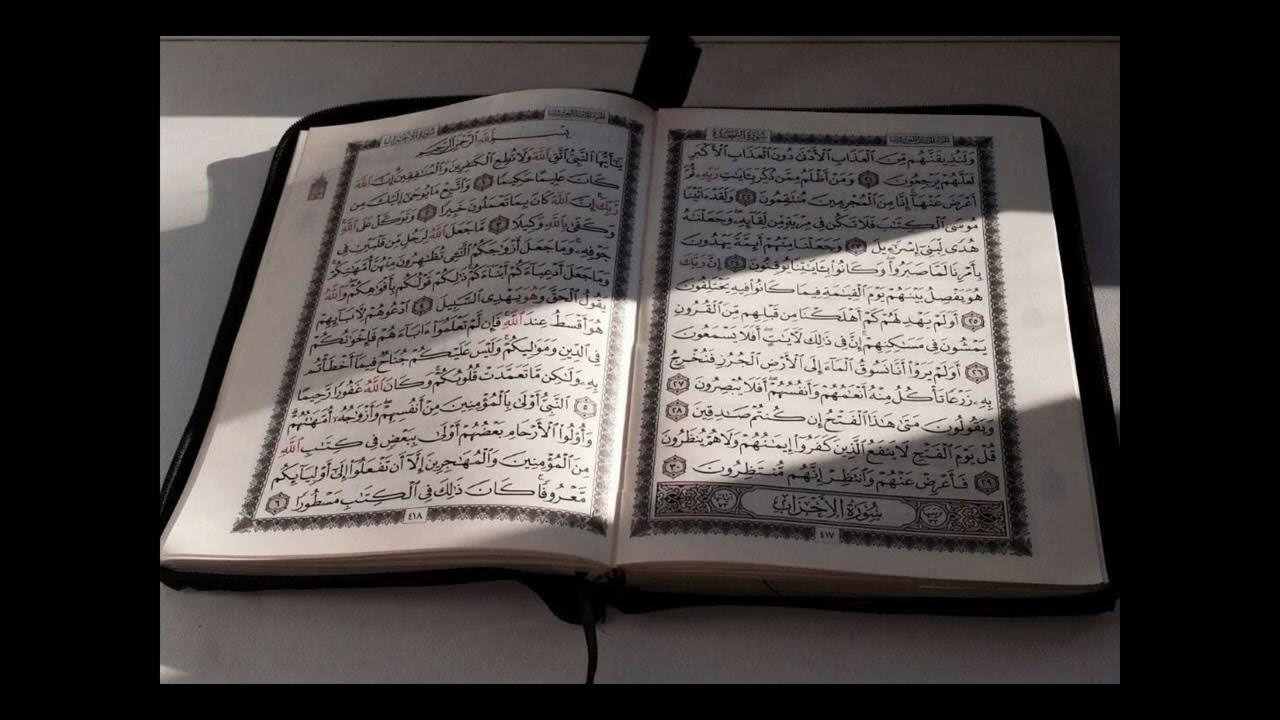 سُورَةُ السَّجْدَةِ
وَلَنُذِيقَنَّهُم مِّنَ الْعَذَابِ الْأَدْنَىٰ دُونَ الْعَذَابِ الْأَكْبَرِ
لَعَلَّهُمْ يَرْجِعُونَ ٢١ وَمَنْ أَظْلَمُ مِمَّن ذُكِّرَ بِآيَاتِ رَبِّهِ ثُمَّ
أَعْرَضَ عَنْهَا إِنَّا مِنَ الْمُجْرِمِينَ مُنتَقِمُونَ ٢٢ وَلَقَدْ آتَيْنَا
مُوسَى الْكِتَابَ فَلَا تَكُن فِي مِرْيَةٍ مِّن لِّقَائِهِ وَجَعَلْنَاهُ
هُدًى لِّبَنِي إِسْرَائِيلَ ٢٣ وَجَعَلْنَا مِنْهُمْ أَئِمَّةً يَهْدُونَ
بِأَمْرِنَا لَمَّا صَبَرُوا وَكَانُوا بِآيَاتِنَا يُوقِنُونَ ٢٤ إِنَّ رَبَّكَ
هُوَ يَفْصِلُ بَيْنَهُمْ يَوْمَ الْقِيَامَةِ فِيمَا كَانُوا فِيهِ يَخْتَلِفُونَ
٢٥ أَوَلَمْ يَهْدِ لَهُمْ كَمْ أَهْلَكْنَا مِن قَبْلِهِم مِّنَ الْقُرُونِ
يَمْشُونَ فِي مَسَاكِنِهِمْ إِنَّ فِي ذَٰلِكَ لَآيَاتٍ أَفَلَا يَسْمَعُونَ
٢٦ أَوَلَمْ يَرَوْا أَنَّا نَسُوقُ الْمَاءَ إِلَى الْأَرْضِ الْجُرُزِ فَنُخْرِجُ
بِهِ زَرْعًا تَأْكُلُ مِنْهُ أَنْعَامُهُمْ وَأَنفُسُهُمْ أَفَلَا يُبْصِرُونَ ٢٧
وَيَقُولُونَ مَتَىٰ هَٰذَا الْفَتْحُ إِن كُنتُمْ صَادِقِينَ ٢٨
قُلْ يَوْمَ الْفَتْحِ لَا يَنفَعُ الَّذِينَ كَفَرُوا إِيمَانُهُمْ وَلَا هُمْ يُنظَرُونَ
٢٩ فَأَعْرِضْ عَنْهُمْ وَانتَظِرْ إِنَّهُم مُّنتَظِرُونَ ٣٠
سُورَةُ الْأَحْزَابِ
٤١٧
سُورَةُ الْأَحْزَابِ
بِسْمِ اللَّهِ الرَّحْمَٰنِ الرَّحِيمِ
يَا أَيُّهَا النَّبِيُّ اتَّقِ اللَّهَ وَلَا تُطِعِ الْكَافِرِينَ وَالْمُنَافِقِينَ إِنَّ اللَّهَ
كَانَ عَلِيمًا حَكِيمًا ١ وَاتَّبِعْ مَا يُوحَىٰ إِلَيْكَ مِن
رَّبِّكَ إِنَّ اللَّهَ كَانَ بِمَا تَعْمَلُونَ خَبِيرًا ٢ وَتَوَكَّلْ عَلَى اللَّهِ
وَكَفَىٰ بِاللَّهِ وَكِيلًا ٣ مَّا جَعَلَ اللَّهُ لِرَجُلٍ مِّن قَلْبَيْنِ فِي
جَوْفِهِ وَمَا جَعَلَ أَزْوَاجَكُمُ اللَّائِي تُظَاهِرُونَ مِنْهُنَّ أُمَّهَاتِكُمْ
وَمَا جَعَلَ أَدْعِيَاءَكُمْ أَبْنَاءَكُمْ ذَٰلِكُمْ قَوْلُكُم بِأَفْوَاهِكُمْ وَاللَّهُ
يَقُولُ الْحَقَّ وَهُوَ يَهْدِي السَّبِيلَ ٤ ادْعُوهُمْ لِآبَائِهِمْ
هُوَ أَقْسَطُ عِندَ اللَّهِ فَإِن لَّمْ تَعْلَمُوا آبَاءَهُمْ فَإِخْوَانُكُمْ
فِي الدِّينِ وَمَوَالِيكُمْ وَلَيْسَ عَلَيْكُمْ جُنَاحٌ فِيمَا أَخْطَأْتُم
بِهِ وَلَٰكِن مَّا تَعَمَّدَتْ قُلُوبُكُمْ وَكَانَ اللَّهُ غَفُورًا رَّحِيمًا
٥ النَّبِيُّ أَوْلَىٰ بِالْمُؤْمِنِينَ مِنْ أَنفُسِهِمْ وَأَزْوَاجُهُ أُمَّهَاتُهُمْ
وَأُولُو الْأَرْحَامِ بَعْضُهُمْ أَوْلَىٰ بِبَعْضٍ فِي كِتَابِ اللَّهِ
مِنَ الْمُؤْمِنِينَ وَالْمُهَاجِرِينَ إِلَّا أَن تَفْعَلُوا إِلَىٰ أَوْلِيَائِكُم
مَّعْرُوفًا كَانَ ذَٰلِكَ فِي الْكِتَابِ مَسْطُورًا ٦
٤١٨